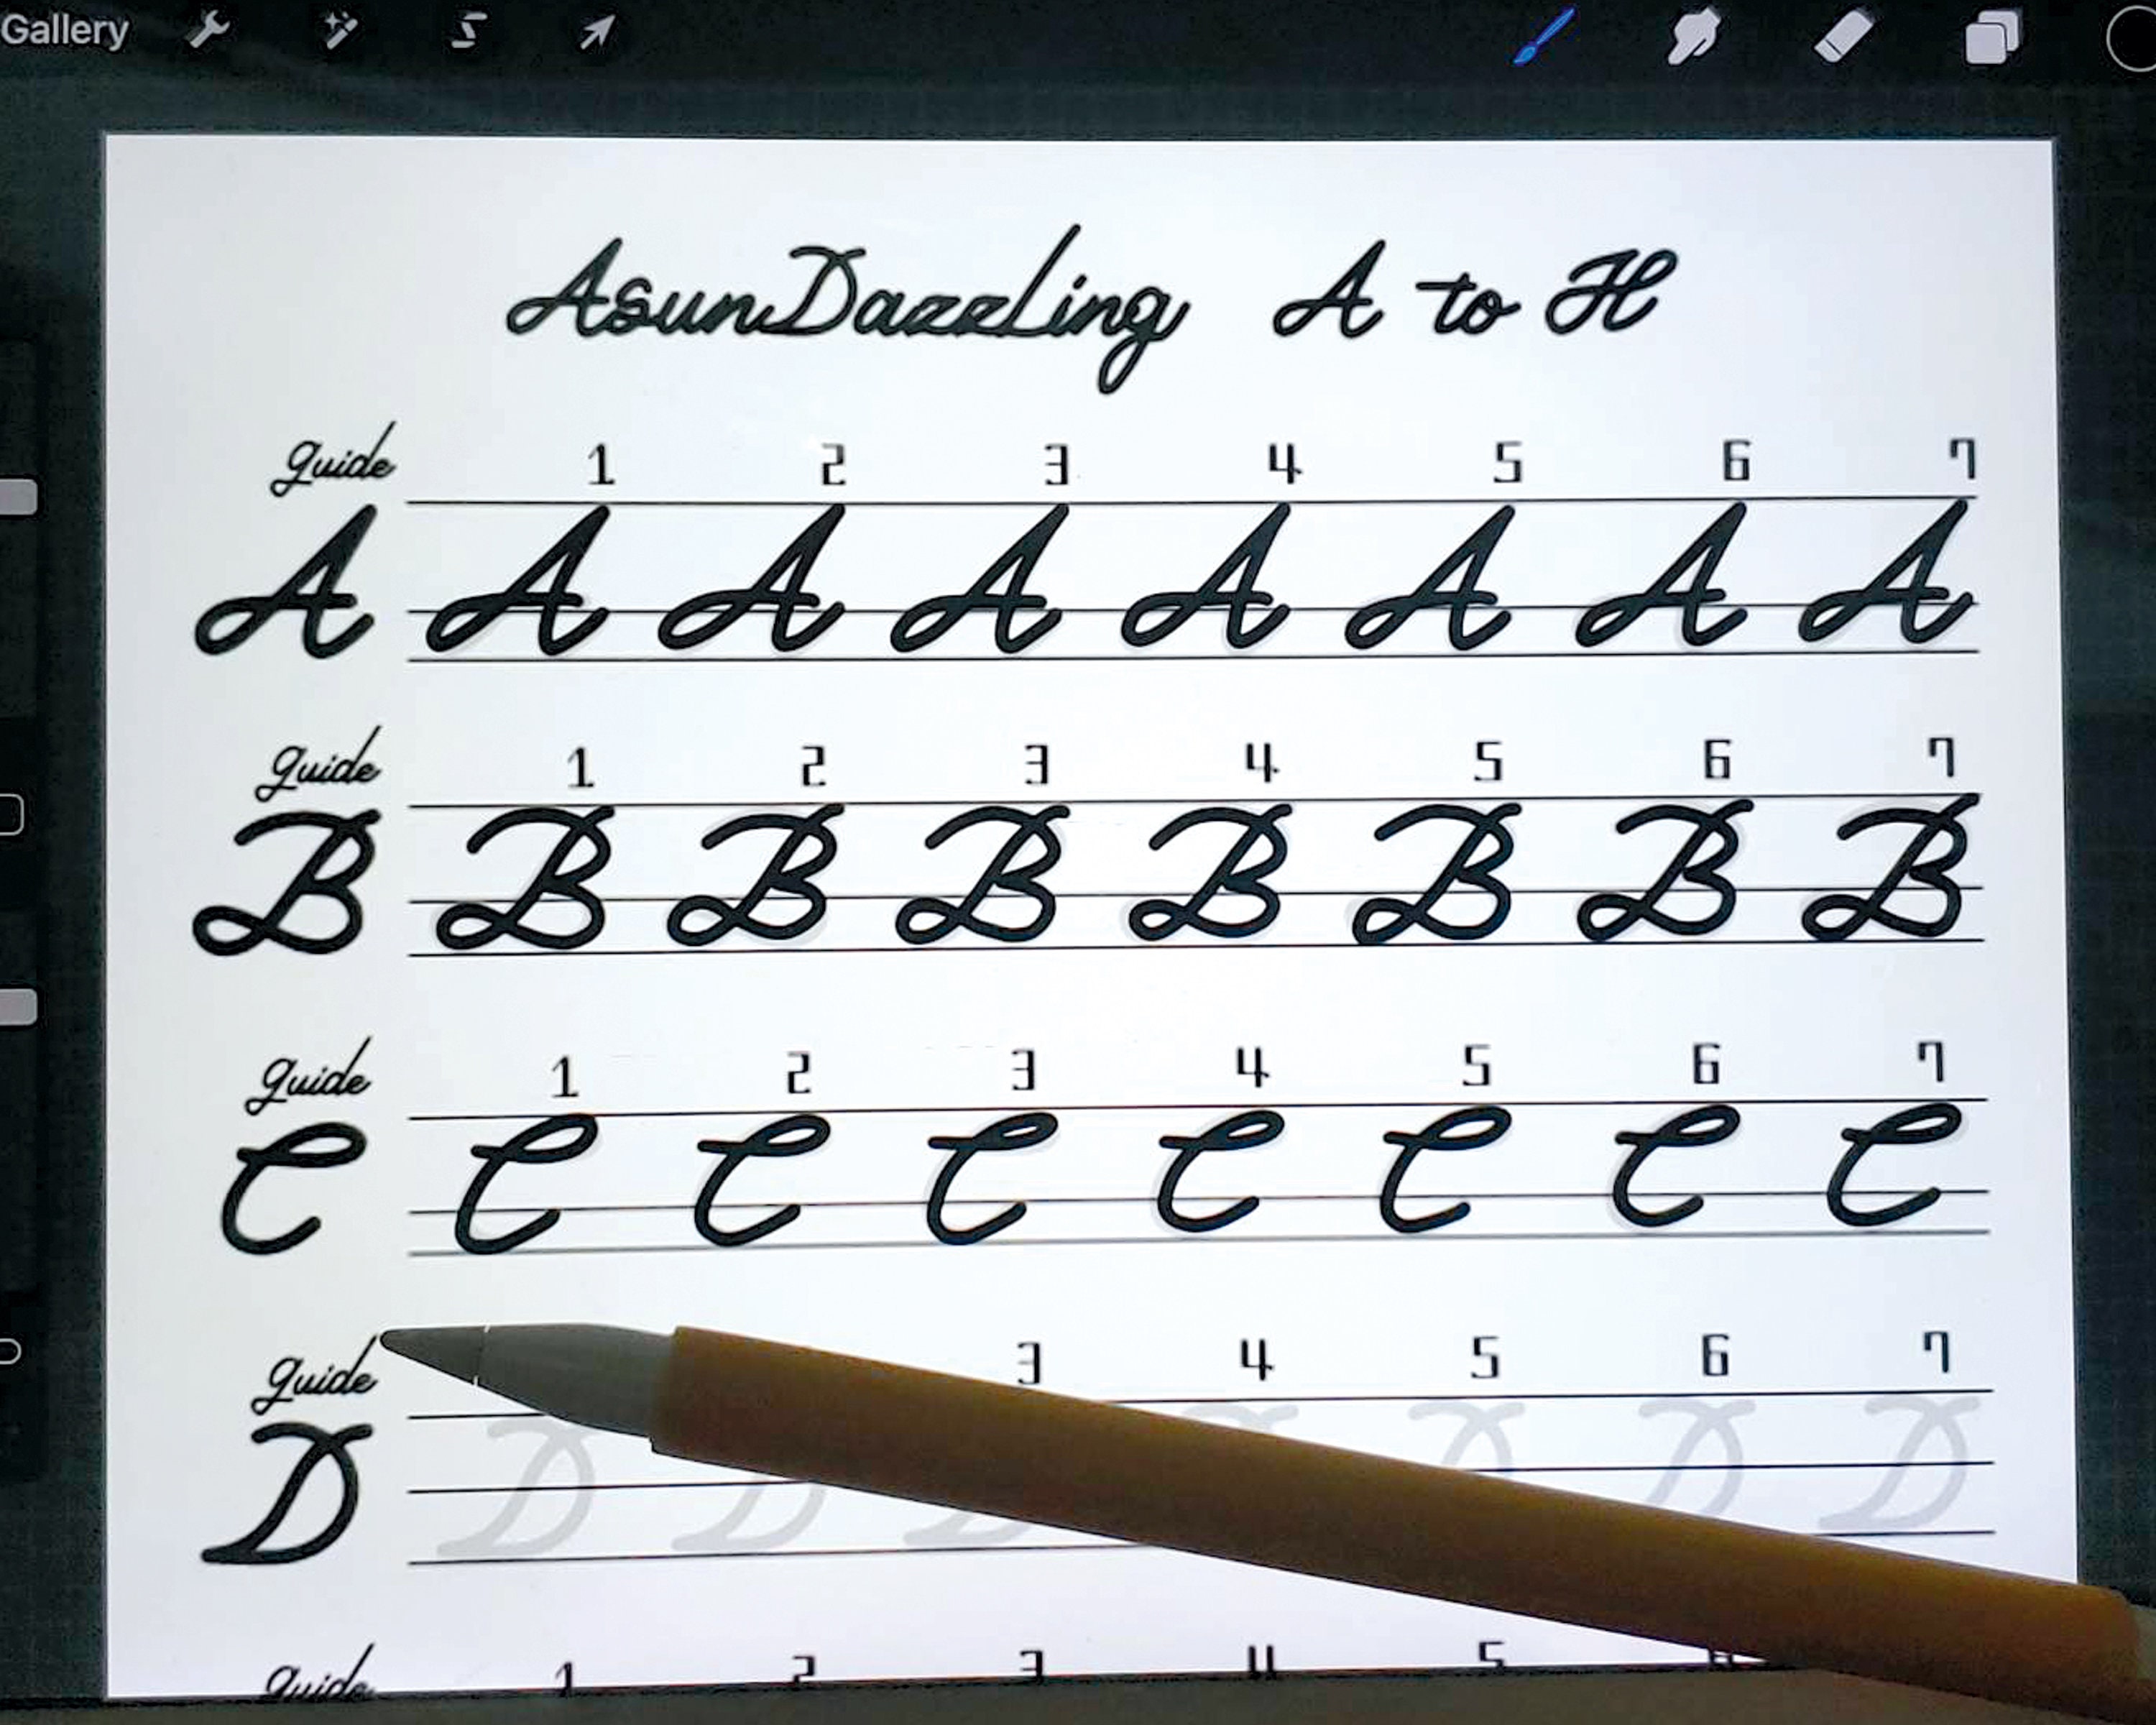 Gallery
AsunDazzLing A to H
guide 1 2 3 4 5 6 7
A A A A A A A A
guide 1 2 3 4 5 6 7
B B B B B B B B
guide 1 2 3 4 5 6 7
C C C C C C C C
guide 3 4 5 6 7
D D D D D D D
guide 1 2 3 4 5